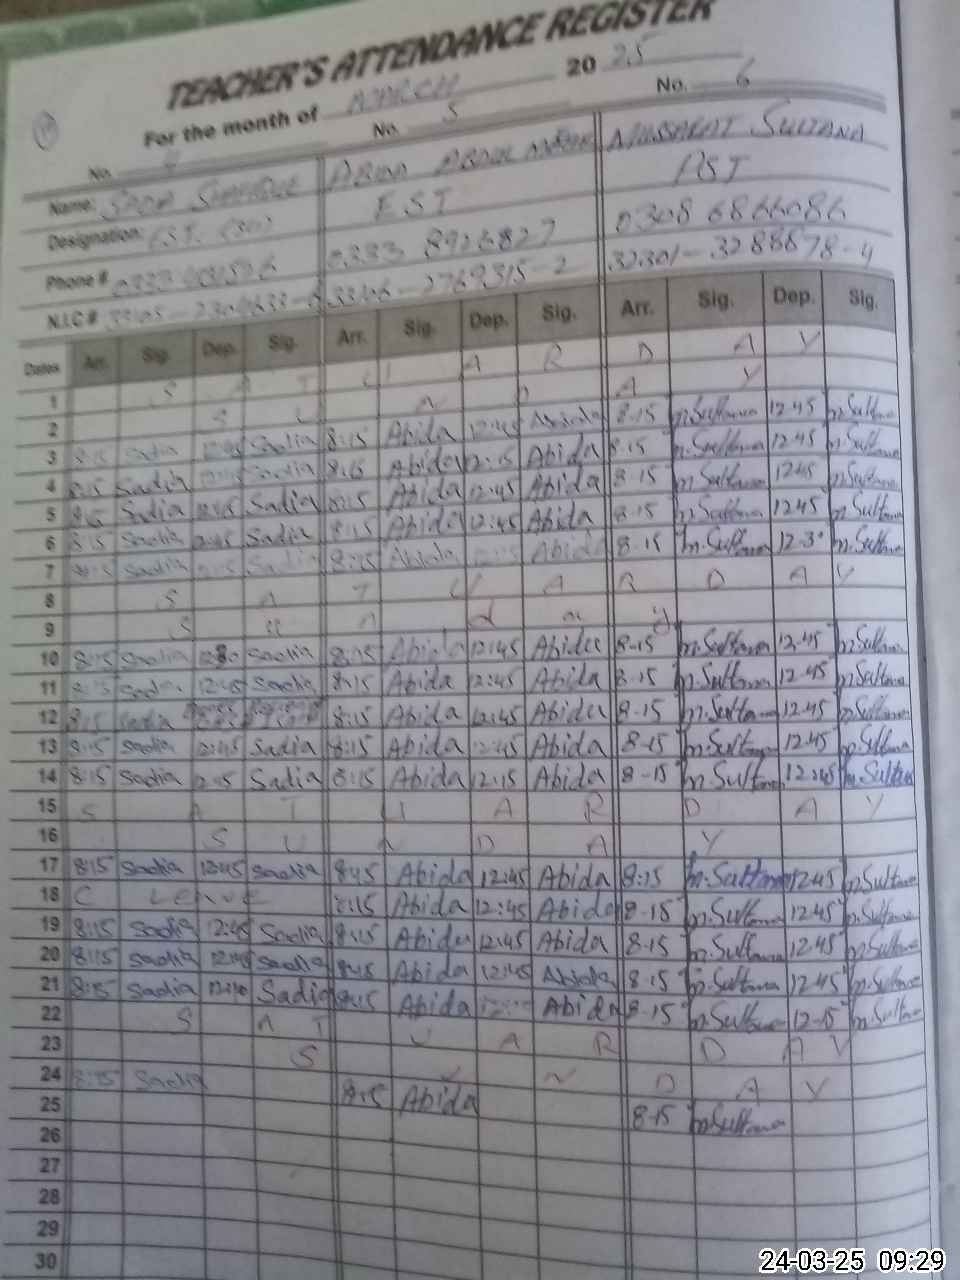 TEACHER'S ATTENDANCE REGISTER
For the month of MARCH 2025
No. 4 No. 5 No. 6
Name: ABIDA ABDUL MUSSARAT SULTANA
Designation: EST EST PST
Phone # 0333 8926827 0308 6866086
N.I.C # 33106-2769315-2 32301-3288878-4
Dates Arr. Sig. Dep. Sig. Arr. Sig. Dep. Sig. Arr. Sig. Dep. Sig.
1 S A T U A R D A Y
2 S U N D A Y
3 8:15 Sadia 12:45 Sadia 8:15 Abida 12:45 Abida 8.15 m.Sultana 12.45 m.Sultana
4 8:15 Sadia Sadia 8:15 Abida 12:15 Abida 8.15 m.Sultana 12.45 m.Sultana
5 8:15 Sadia 12:45 Sadia 8:15 Abida 12:45 Abida 8.15 m.Sultana 12.45 m.Sultana
6 8:15 Sadia 12:45 Sadia 8:15 Abida 12:45 Abida 8.15 m.Sultana 12.45 m.Sultana
7 8:15 Sadia Sadia 8:15 Abida Abida 8-15 m.Sultana 12-30 m.Sultana
8 S A T U A R D A Y
9 S u n d a y
10 8:15 Sadia Sadia 8:15 Abida 12:45 Abida 8-15 m.Sultana 12.45 m.Sultana
11 8:15 Sadia 12:45 Sadia 8:15 Abida 12:45 Abida 8.15 m.Sultana 12.45 m.Sultana
12 8:15 Sadia 8:15 Abida 12:45 Abida 8-15 m.Sultana 12.45 m.Sultana
13 8:15 Sadia 12:45 Sadia 8:15 Abida 12:45 Abida 8-15 m.Sultana 12.45 m.Sultana
14 8:15 Sadia Sadia 8:15 Abida 12:15 Abida 8-15 m.Sultana 12:45 m.Sultana
15 S A T U A R D A Y
16 S U N D A Y
17 8:15 Sadia 12:45 Sadia 8:15 Abida 12:45 Abida 8:15 m.Sultana 12.45 m.Sultana
18 C LEAVE 8:15 Abida 12:45 Abida 8-15 m.Sultana 12.45 m.Sultana
19 8:15 Sadia 12:45 Sadia 8:15 Abida 12:45 Abida 8.15 m.Sultana 12.45 m.Sultana
20 8:15 Sadia 12:45 Sadia 8:15 Abida 12:45 Abida 8.15 m.Sultana 12.45 m.Sultana
21 8:15 Sadia Sadia 8:15 Abida Abida 8-15 m.Sultana 12-15 m.Sultana
22 S A T U A R D A Y
23 S U N D A Y
24 8:15 Sadia 8:15 Abida 8-15 m.Sultana
25
26
27
28
29
30
24-03-25 09:29